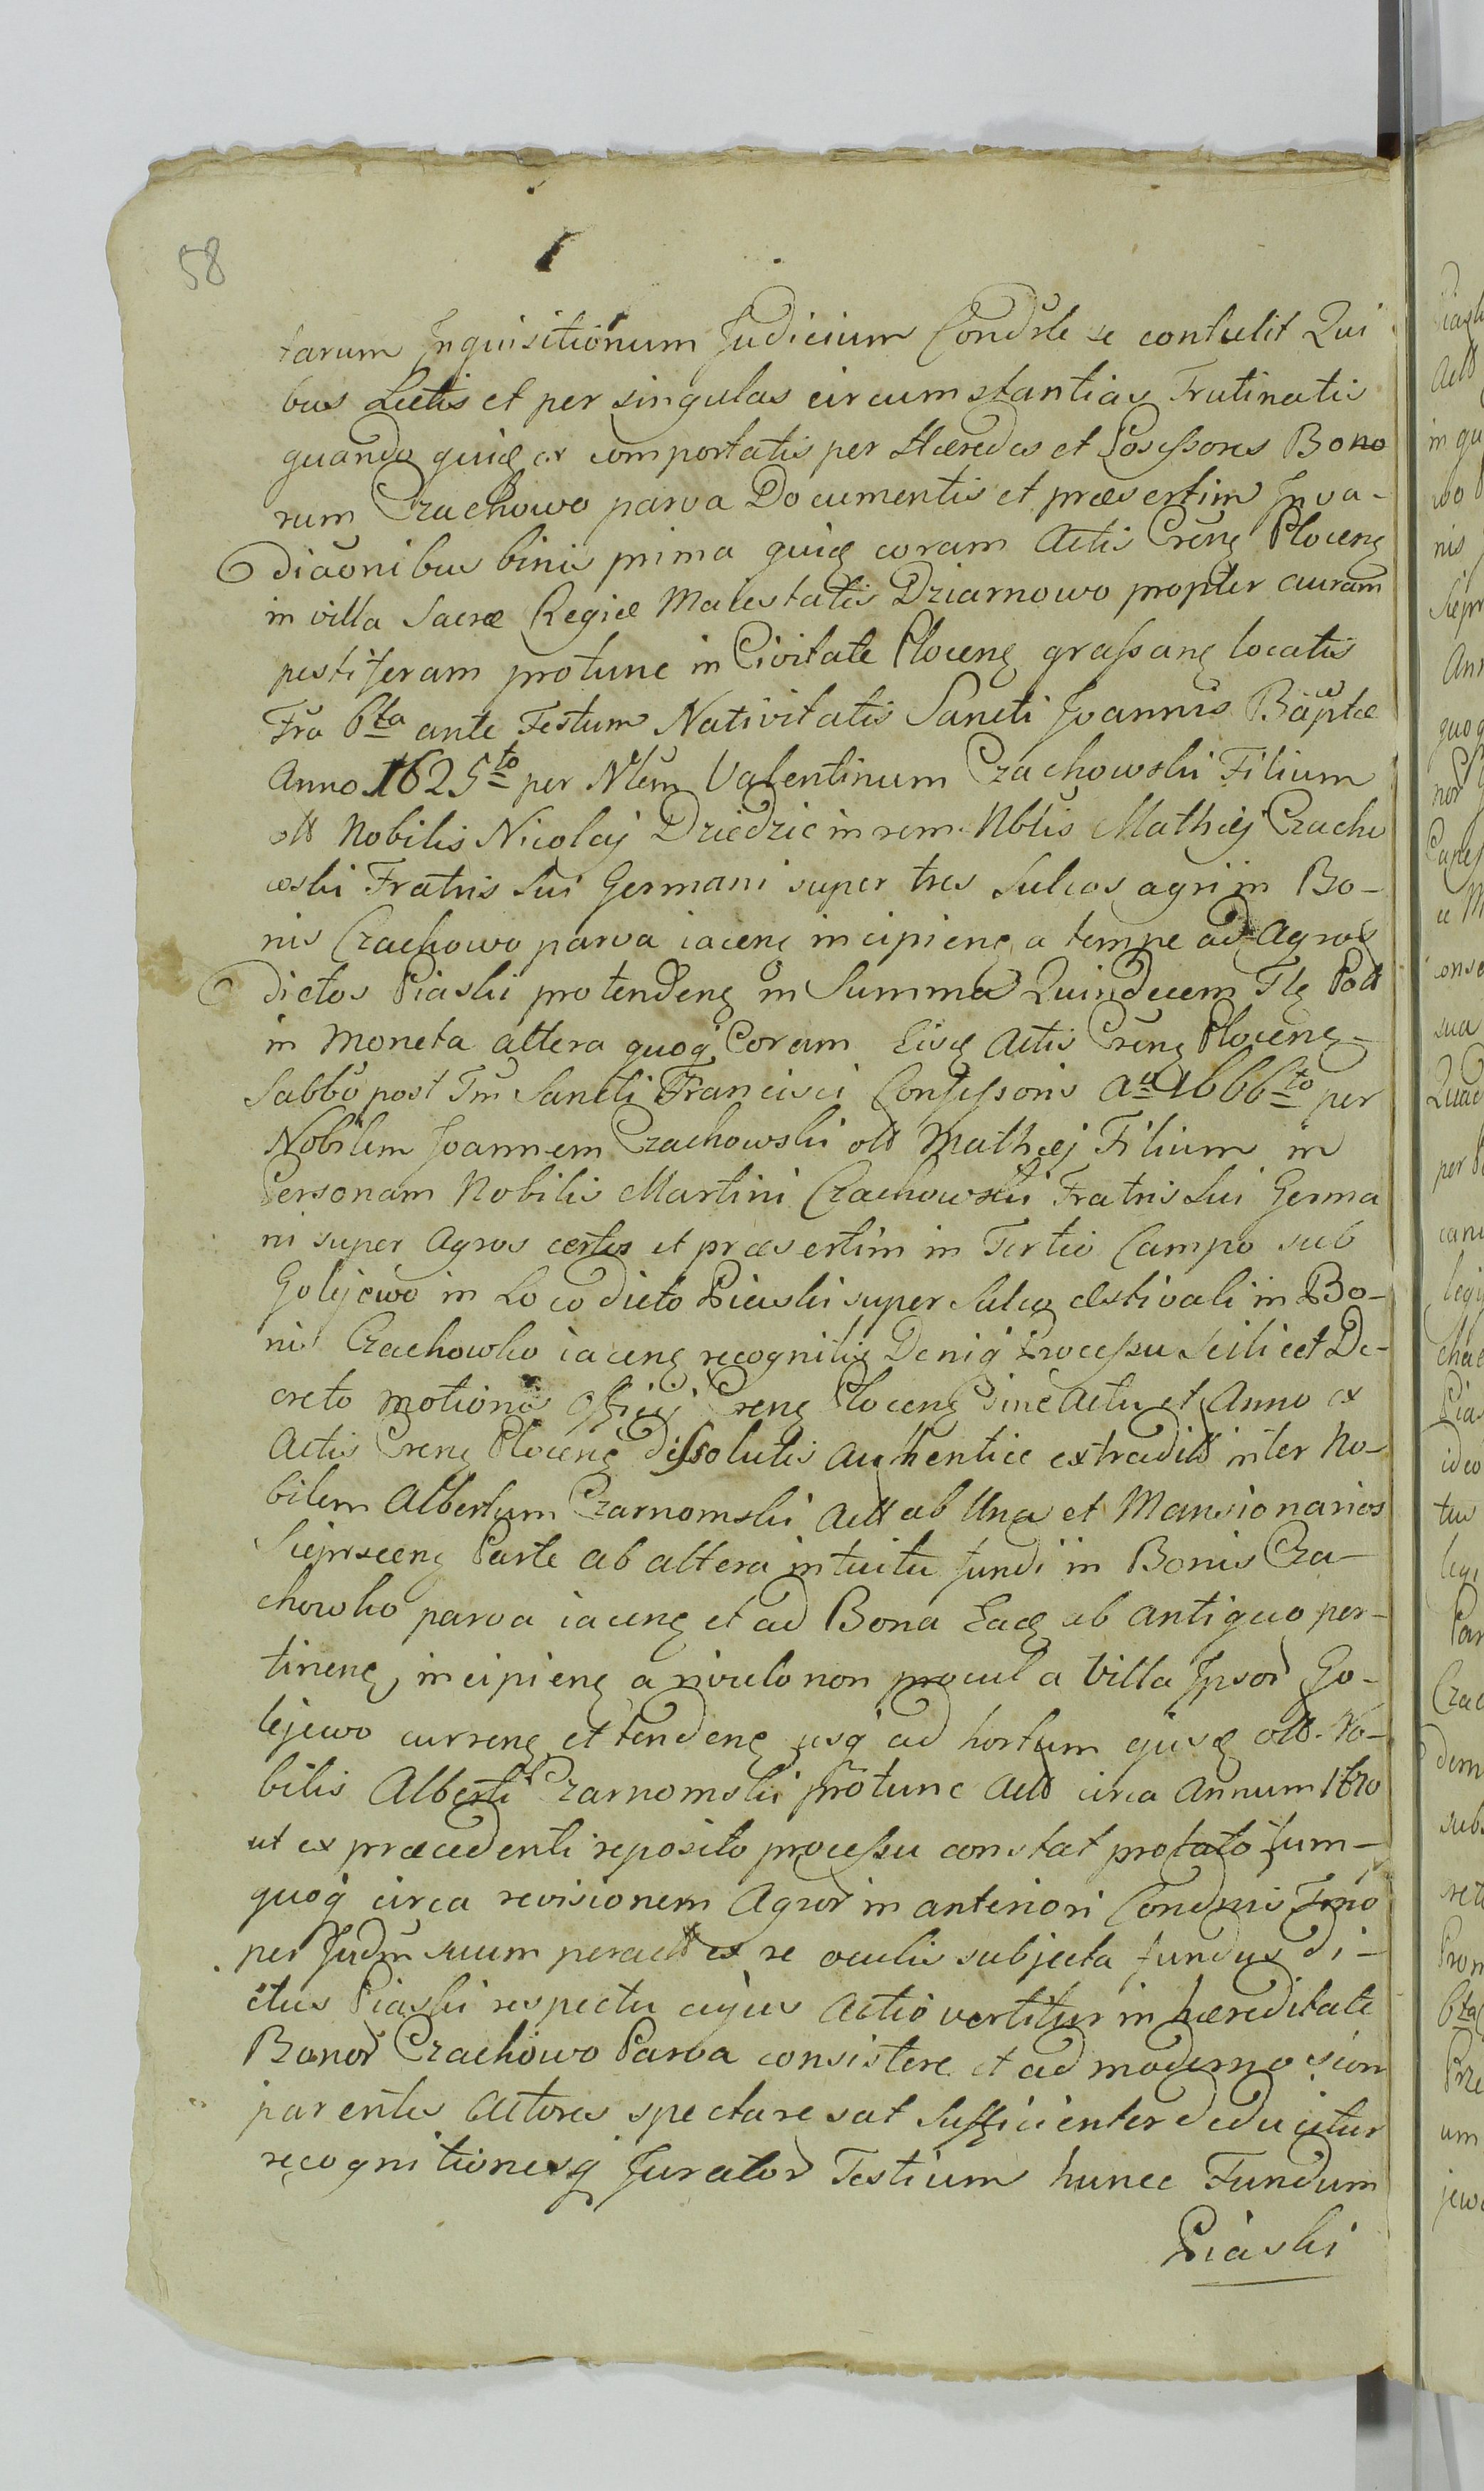 58
tarum Inquisitionum Judicium Condrle se contulit Qui
bus Lectis et per singulas circumstantias Trutinatis
quando quidę ex comportatis per Hæredes et Possessores Bono
rum Czachowo parva Documentis et præsertim Inva-
diaōnibus binis prima quidę coram Actis Crēnę Plocenę
in villa Sacræ Regiæ Maiestatis Dziarnowo propter auram
pestiferam protunc in Civitate Plocenę grassanę locatis
Fra 6ta ante Festum Nativitatis Sancti Joannis Bāptæ
Anno 1625to per Nlēm Valentinum Czachowski Filium
olt Nobilis Nicolaj Dziedzic in rem Nblis Mathæj Czacho
wski Fratris Sui Germani super tres Sulcos agri in Bo-
nis Czachowo parva iacenę incipienę a tempe ad Agros
dictos Piaski protendenę in Summa Quindecem Flę Poll
in Moneta altera quoq Coram Eisdę Actis Crēnę Plocenę
Sabbō post Fm Sancti Francisci Confessoris Ao 1666to per
Nobilem Joannem Czachowski olt Mathæj Filium in
Personam Nobilis Martini Czachowski Fratris Sui Germa
ni super Agros certos et præsertim in Tertio Campo sub
Golejewo in Loco dicto Piaski super Sulco æstivali in Bo-
nis Czachowko iacenę recognitis Deniq Processu Scilicet De-
creto motionis Officij Crenę Plocenę Sine Actu et Anno ex
Actis Crenę Plocenę dissolutis Authentice extraditt inter No-
bilem Albertum Czarnomski Actt ab Una et Mansionarios
Sieprscenę Parte ab altera intuitu fundi in Bonis Cza-
chowko parva iacenę et ad Bona Eadę ab antiquo per-
tinenę, incipienę a rivulo non procul a Villa Ipsor Go-
lejewo currenę et tendenę usq ad hortum ejusdę olt. No-
bilis Alberti Czarnomski protunc Actt circa Annum 1670
ut ex præcedenti reposito processu constat probato tum-
quoq circa revisionem Agror in anteriori Condnis Tmo
per Judm suum peractt ex re oculis subjecta fundus di-
ctus Piaski respectu cujus Actio vertitur in hæreditate
Bonor Czachowo Parva consistere et ad moderno com
parentes Actores spectare sat Sufficienter deducitur
recognitionesq Jurator Testium hunce Fundum
Piaski